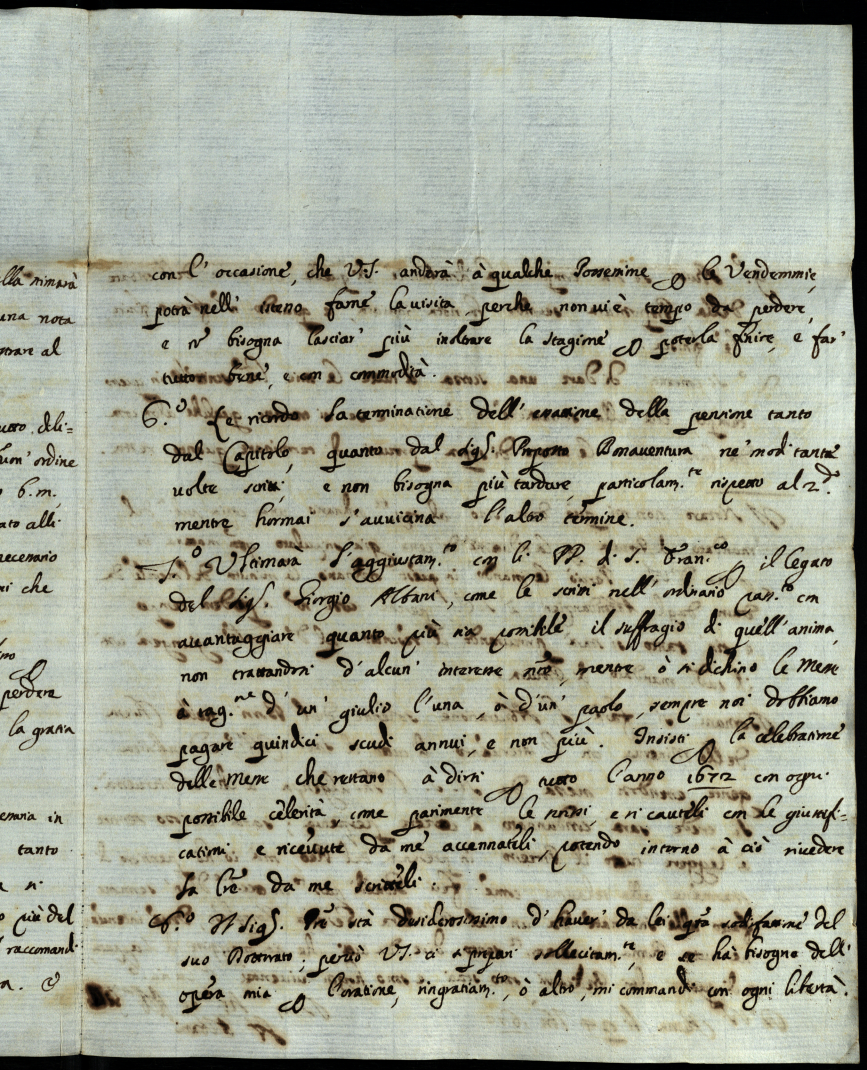 lla rimarà
una nota
trare al
uon' ordine
b. m.
ato alli
necessario
ni che
perdera
la gratia
tanto
più del
raccomand
con l' occasione, che V.S. anderà à qualche Possessione le Vendemmie,
potrà nell' isteso farne la visita, perche non vi è tempo da perdere,
e nō bisogna lasciar' più inoltrare la stagione poterla finire, e far'
tutto bene, e con commodità.
6.º Le ricordo la terminatione dell' esattione della pensione tanto
dal Capitolo, quanto dal Sig.r Proposto Bonaventura ne' modi tante
volte scritti, e non bisogna più tardare, particolarm.te rispetto al 2.º
mentre hormai s'avvicina l'altro termine.
7.º Ultimarà l'aggiustam.to con li PP. di S. Fran.co il legato
del Sig.r Giorgio Albani, come le scrissi nell' ordinario pass.to con
avantaggiare quanto più sia possibile il suffragio di quell' anima,
non trattandosi d'alcun' interesse nrō, mentre ò si dichino le Messe
à rag.ne d' un' giulio l'una, ò d'un' paolo, sempre noi dobbiamo
pagare quindici scudi annui, e non più. Insisti la celebratione
delle Messe che restano à dirsi tutto l'anno 1672 con ogni
possibile celerità, come parimente le scrissi, e si cauteli con le giustifi=
cationi e ricevute da me accennateli, potendo intorno à ciò rivedere
la lrē da me scritteli.
8.º Il Sig.r Prē stà desiderosissimo d' haver' da lei q̄ta sodisfattione del
suo Dottorato; perciò V.S. ci si prepari sollecitam.te, e se hà bisogno dell'
opera mia l'oratione, ringratiam.to, ò altro, mi commandi con ogni libertà.